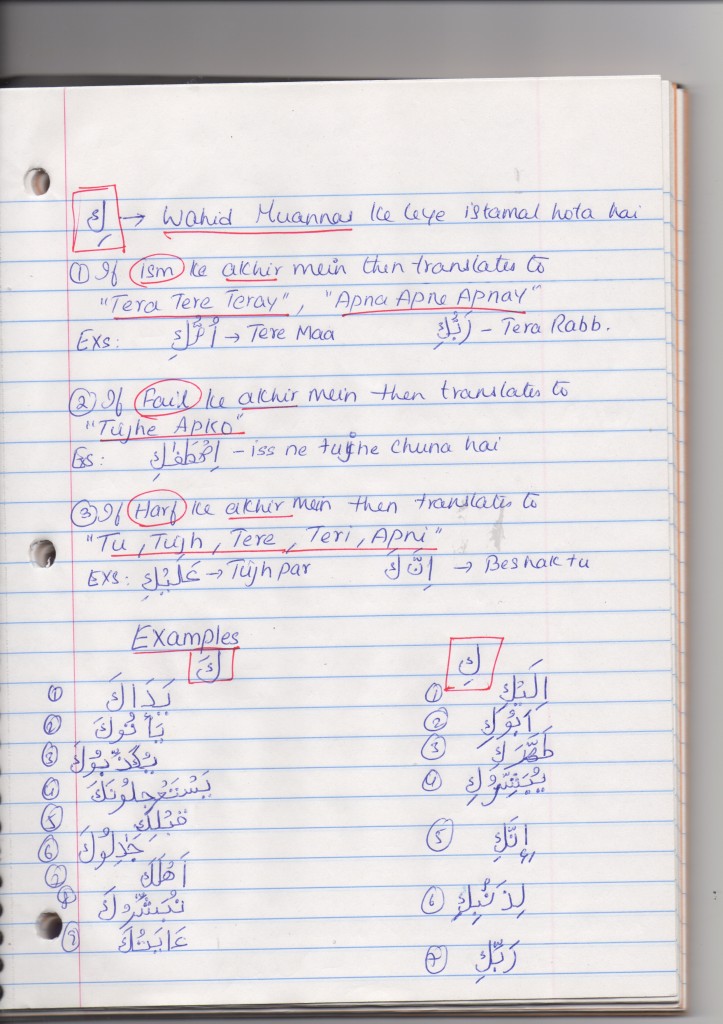 كِ → Wahid Muannas ke leye istamal hota hai
① If ism ke akhir mein then translates to
"Tera Tere Teray", "Apna Apne Apnay"
Exs: اُمُّكِ → Tere Maa رَبُّكِ – Tera Rabb.
② If Fail ke akhir mein then translates to
"Tujhe Apko"
Exs: – iss ne tujhe chuna hai
③ If Harf ke akhir mein then translates to
"Tu, Tujh, Tere, Teri, Apni"
Exs: عَلَيْكِ → Tujh par اِنَّكَ → Beshak tu
Examples
كَ
① يَدَاكَ
② يَأْتُوكَ
③ يُكَذِّبُوكَ
④ يَسْتَعْجِلُونَكَ
⑤ قَبْلِكَ
⑥ جَٰدِلُوكَ
⑦ اَهْلَكَ
⑧ نُبَشِّرُكَ
⑨
كِ
① اِلَيْكِ
② اَبُوكِ
③ طَهَّرَكِ
④ يُبَشِّرُكِ
⑤ اِنَّكِ
⑥ لِذَنْبِكِ
⑦ رَبِّكِ